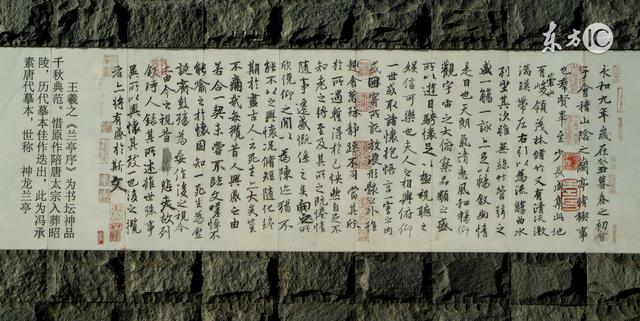 东方IC
永和九年歲在癸丑暮春之初會
于會稽山陰之蘭亭脩稧事
也羣賢畢至少長咸集此地
有峻領茂林脩竹又有清流激
湍暎帶左右引以為流觴曲水
列坐其次雖無絲竹管弦之
盛一觴一詠亦足以暢敘幽情
是日也天朗氣清惠風和暢仰
觀宇宙之大俯察品類之盛
所以遊目騁懷足以極視聽之
娛信可樂也夫人之相與俯仰
一世或取諸懷抱悟言一室之內
或因寄所託放浪形骸之外雖
趣舍萬殊靜躁不同當其欣
於所遇蹔得於己怏然自足不
知老之將至及其所之既惓情
隨事遷感慨係之矣向之所
欣俛仰之閒以為陳迹猶不
能不以之興懷況脩短隨化終
期於盡古人云死生亦大矣豈
不痛哉每攬昔人興感之由
若合一契未嘗不臨文嗟悼不
能喻之於懷固知一死生為虛
誕齊彭殤為妄作後之視今
亦由今之視昔悲夫故列
敘時人錄其所述雖世殊事
異所以興懷其致一也後之攬
者亦將有感於斯文
王羲之《兰亭序》为书坛神品
千秋典范。惜原作陪唐太宗入葬昭
陵，历代摹本佳作迭出，此为冯承
素唐代摹本，世称 神龙兰亭